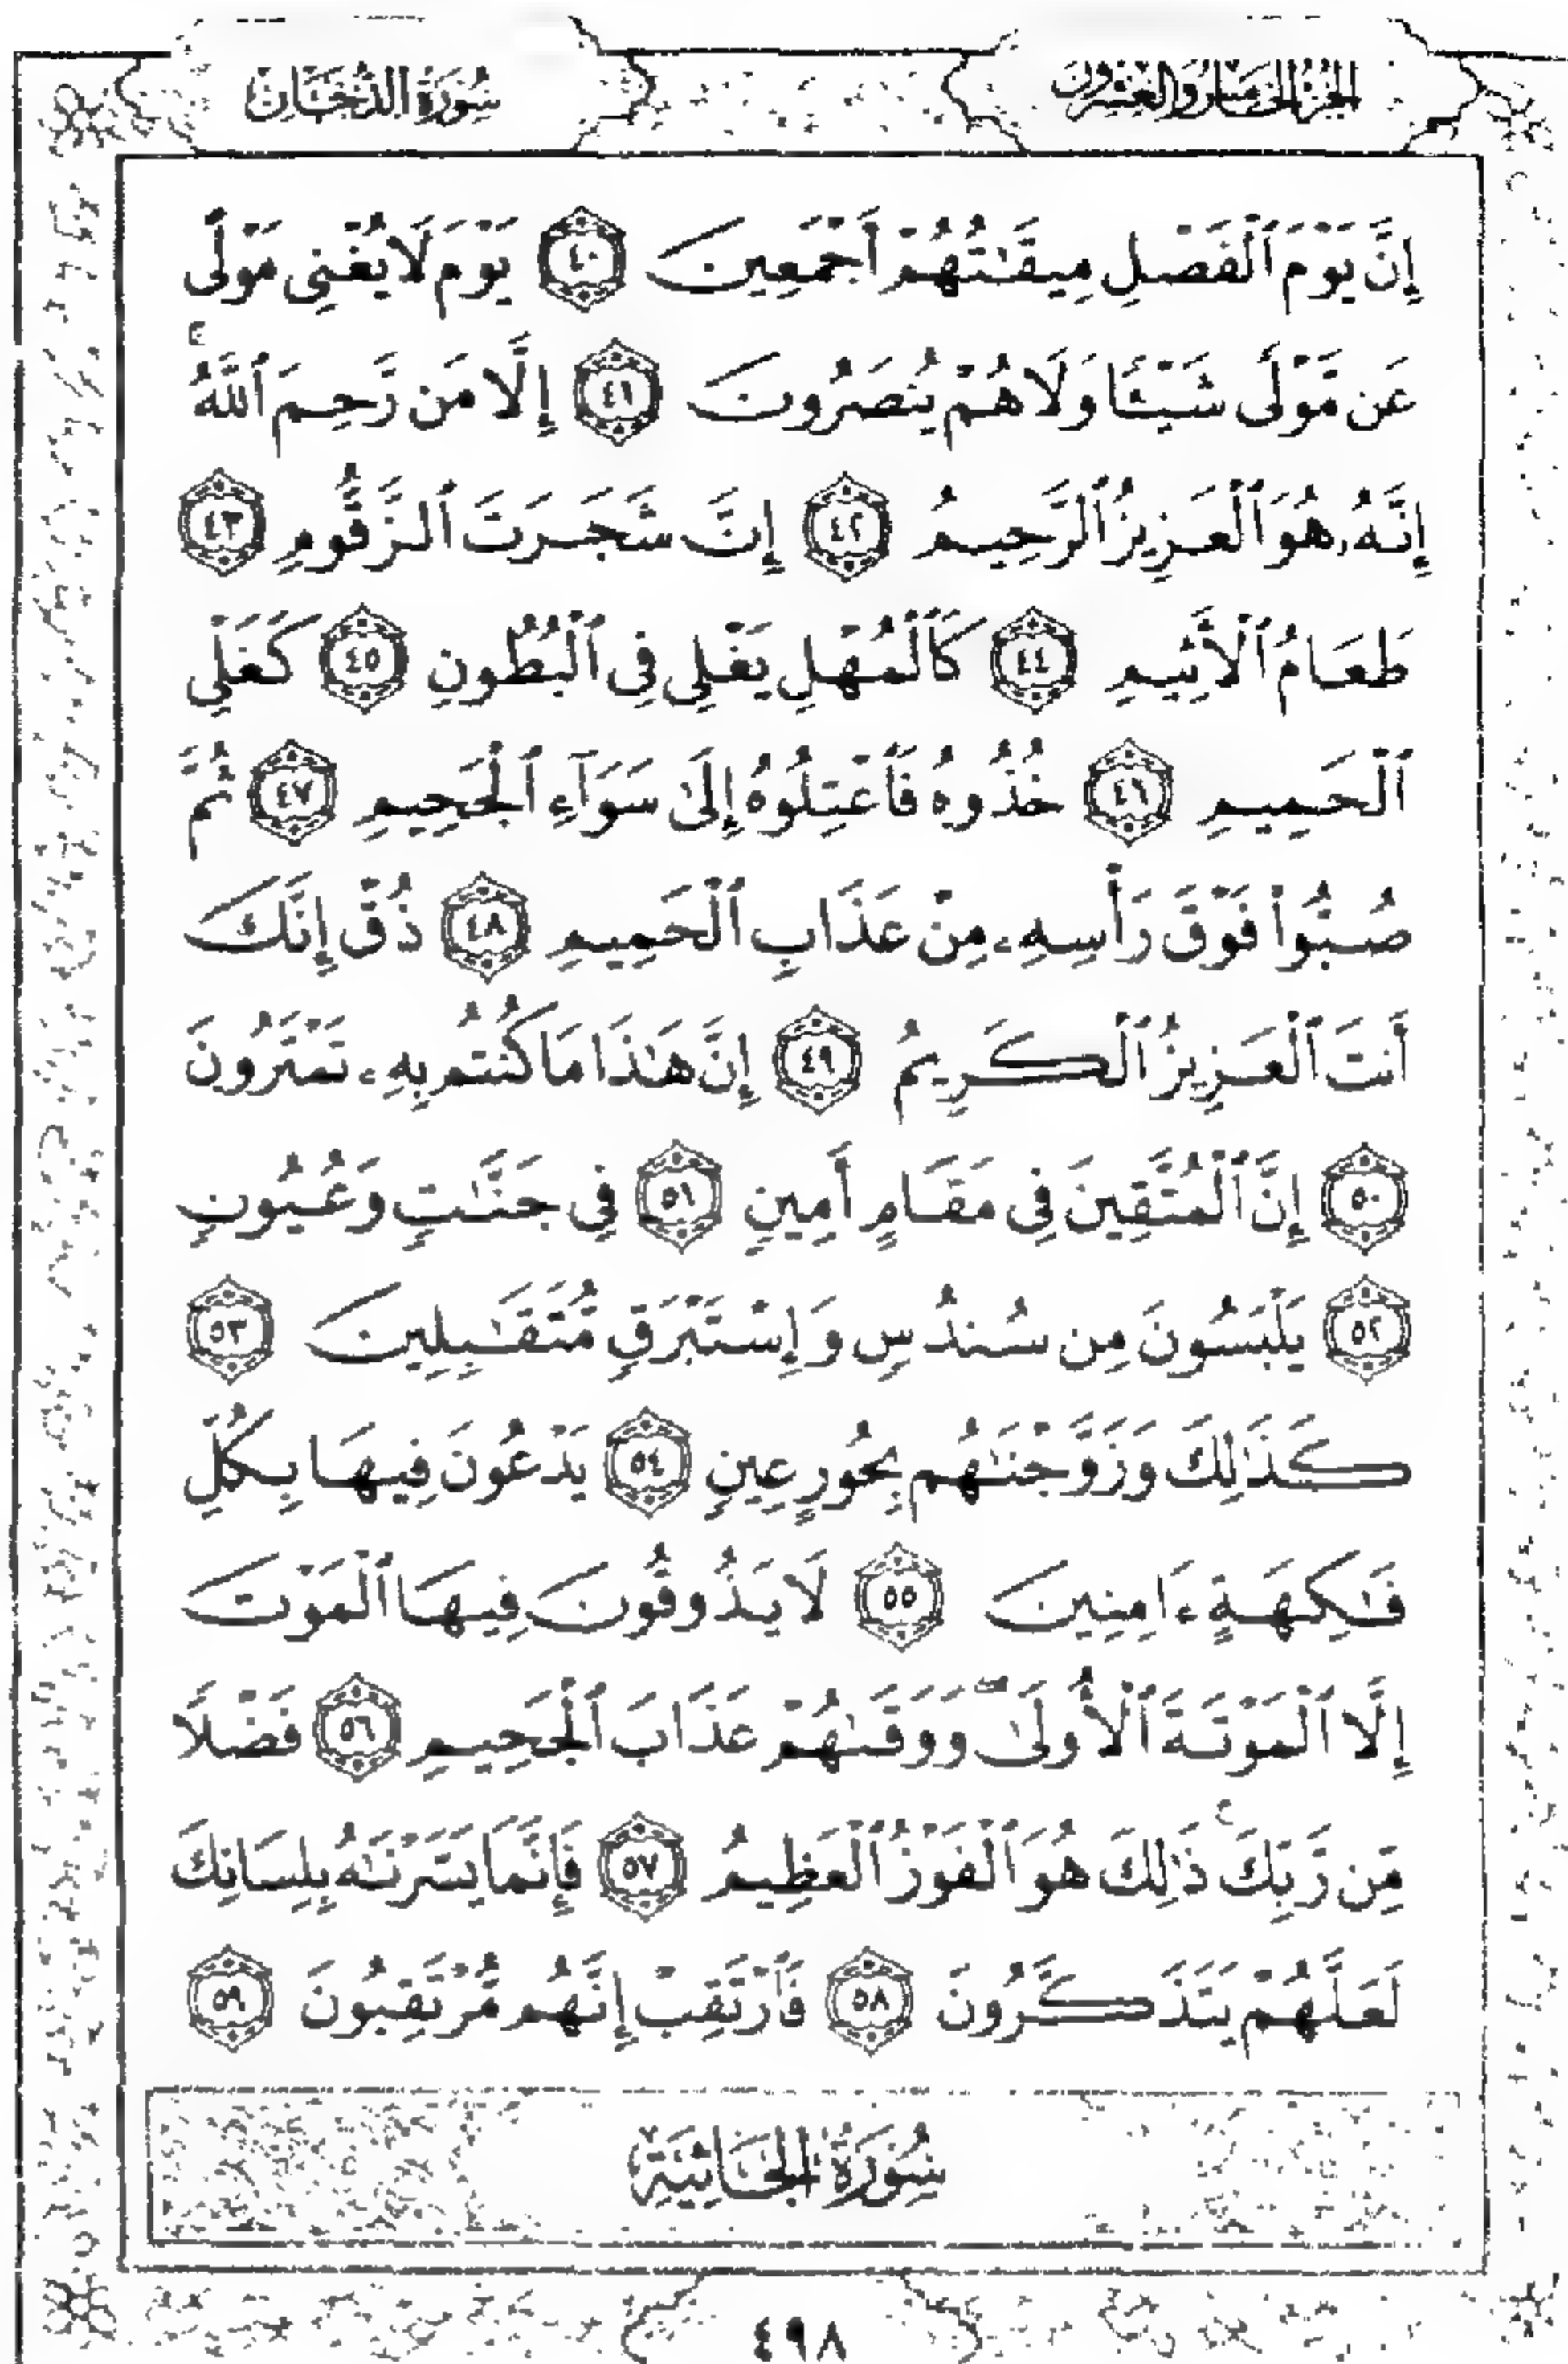 الجزء الخامس والعشرون
سُورَةُ الدُّخَانِ
إِنَّ يَوْمَ ٱلْفَصْلِ مِيقَٰتُهُمْ أَجْمَعِينَ ٤٠ يَوْمَ لَا يُغْنِى مَوْلًى
عَن مَّوْلًى شَيْـًٔا وَلَا هُمْ يُنصَرُونَ ٤١ إِلَّا مَن رَّحِمَ ٱللَّهُ ۚ
إِنَّهُۥ هُوَ ٱلْعَزِيزُ ٱلرَّحِيمُ ٤٢ إِنَّ شَجَرَتَ ٱلزَّقُّومِ ٤٣
طَعَامُ ٱلْأَثِيمِ ٤٤ كَٱلْمُهْلِ يَغْلِى فِى ٱلْبُطُونِ ٤٥ كَغَلْىِ
ٱلْحَمِيمِ ٤٦ خُذُوهُ فَٱعْتِلُوهُ إِلَىٰ سَوَآءِ ٱلْجَحِيمِ ٤٧ ثُمَّ
صُبُّوا۟ فَوْقَ رَأْسِهِۦ مِنْ عَذَابِ ٱلْحَمِيمِ ٤٨ ذُقْ إِنَّكَ
أَنتَ ٱلْعَزِيزُ ٱلْكَرِيمُ ٤٩ إِنَّ هَٰذَا مَا كُنتُم بِهِۦ تَمْتَرُونَ
٥٠ إِنَّ ٱلْمُتَّقِينَ فِى مَقَامٍ أَمِينٍ ٥١ فِى جَنَّٰتٍ وَعُيُونٍ
٥٢ يَلْبَسُونَ مِن سُندُسٍ وَإِسْتَبْرَقٍ مُّتَقَٰبِلِينَ ٥٣
كَذَٰلِكَ وَزَوَّجْنَٰهُم بِحُورٍ عِينٍ ٥٤ يَدْعُونَ فِيهَا بِكُلِّ
فَٰكِهَةٍ ءَامِنِينَ ٥٥ لَا يَذُوقُونَ فِيهَا ٱلْمَوْتَ
إِلَّا ٱلْمَوْتَةَ ٱلْأُولَىٰ ۖ وَوَقَىٰهُمْ عَذَابَ ٱلْجَحِيمِ ٥٦ فَضْلًا
مِّن رَّبِّكَ ۚ ذَٰلِكَ هُوَ ٱلْفَوْزُ ٱلْعَظِيمُ ٥٧ فَإِنَّمَا يَسَّرْنَٰهُ بِلِسَانِكَ
لَعَلَّهُمْ يَتَذَكَّرُونَ ٥٨ فَٱرْتَقِبْ إِنَّهُم مُّرْتَقِبُونَ ٥٩
سُورَةُ الجَاثِيَةِ
٤٩٨